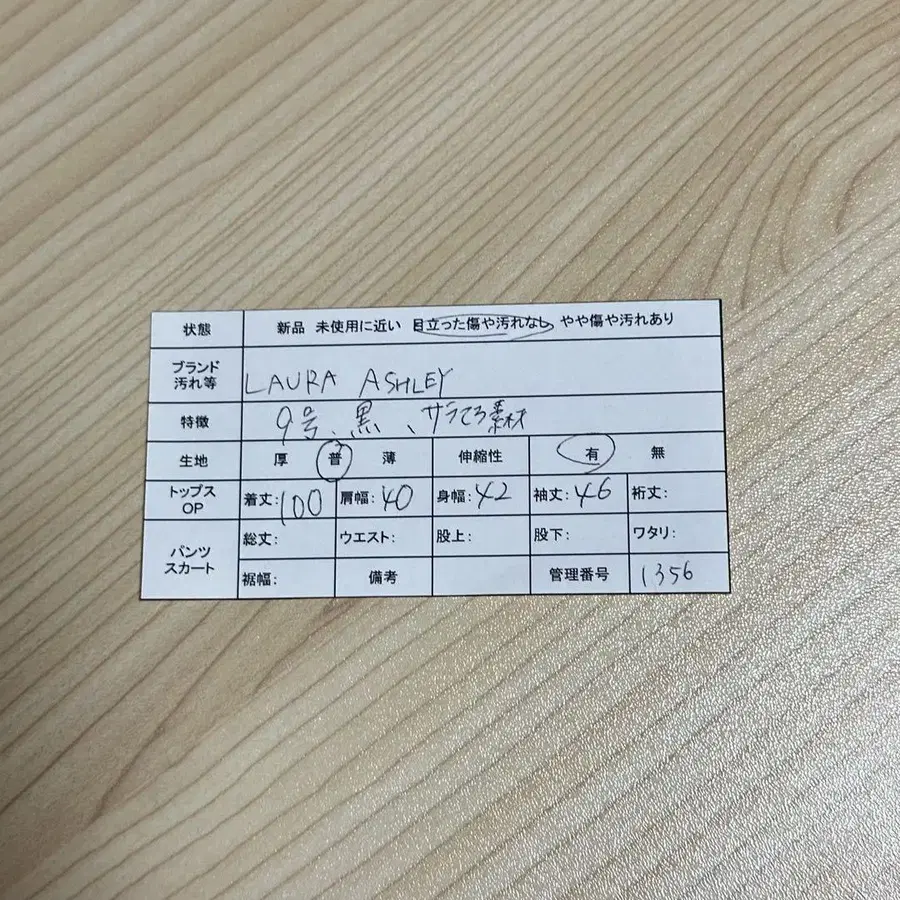 状態 新品 未使用に近い 目立った傷や汚れなし やや傷や汚れあり
ブランド
汚れ等
LAURA ASHLEY
特徴 9号、黒、サラてろ素材
生地 厚 普 薄 伸縮性 有 無
トップス
OP
着丈:100 肩幅:40 身幅:42 袖丈:46 裄丈:
パンツ
スカート
総丈: ウエスト: 股上: 股下: ワタリ:
裾幅: 備考 管理番号 1356